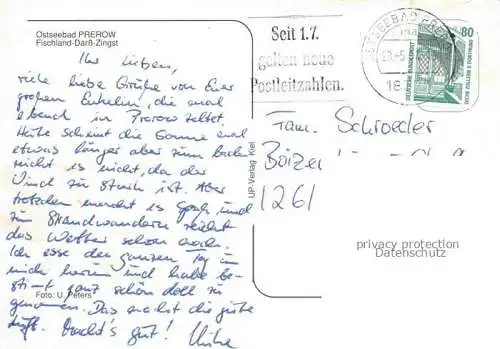 Ostseebad PREROW
Fischland-Darß-Zingst
Ihr Lieben,
viele liebe Grüße von Eurer
großen Enkelin, die mal
eben in Prerow zeltet.
Heute scheint die Sonne mal
etwas länger aber zum baden
reicht es nicht, da der
Wind zu stark ist. Aber
trotzdem macht es Spaß und
zum Strandwandern reicht
das Wetter schon auch.
Ich esse den ganzen Tag in
mich herein und habe be-
stimmt ganz schön doll zu
genommen. Das macht die gute
Luft. Macht's gut!
Foto: U. Peters
UP-Verlag Kiel
Seit 1.7.
gelten neue
Postleitzahlen.
OSTSEEBAD PREROW
18
80
DEUTSCHE BUNDESPOST
ZECHE ZOLLERN II DORTMUND
Fam. Schroeder
1261
privacy protection
Datenschutz